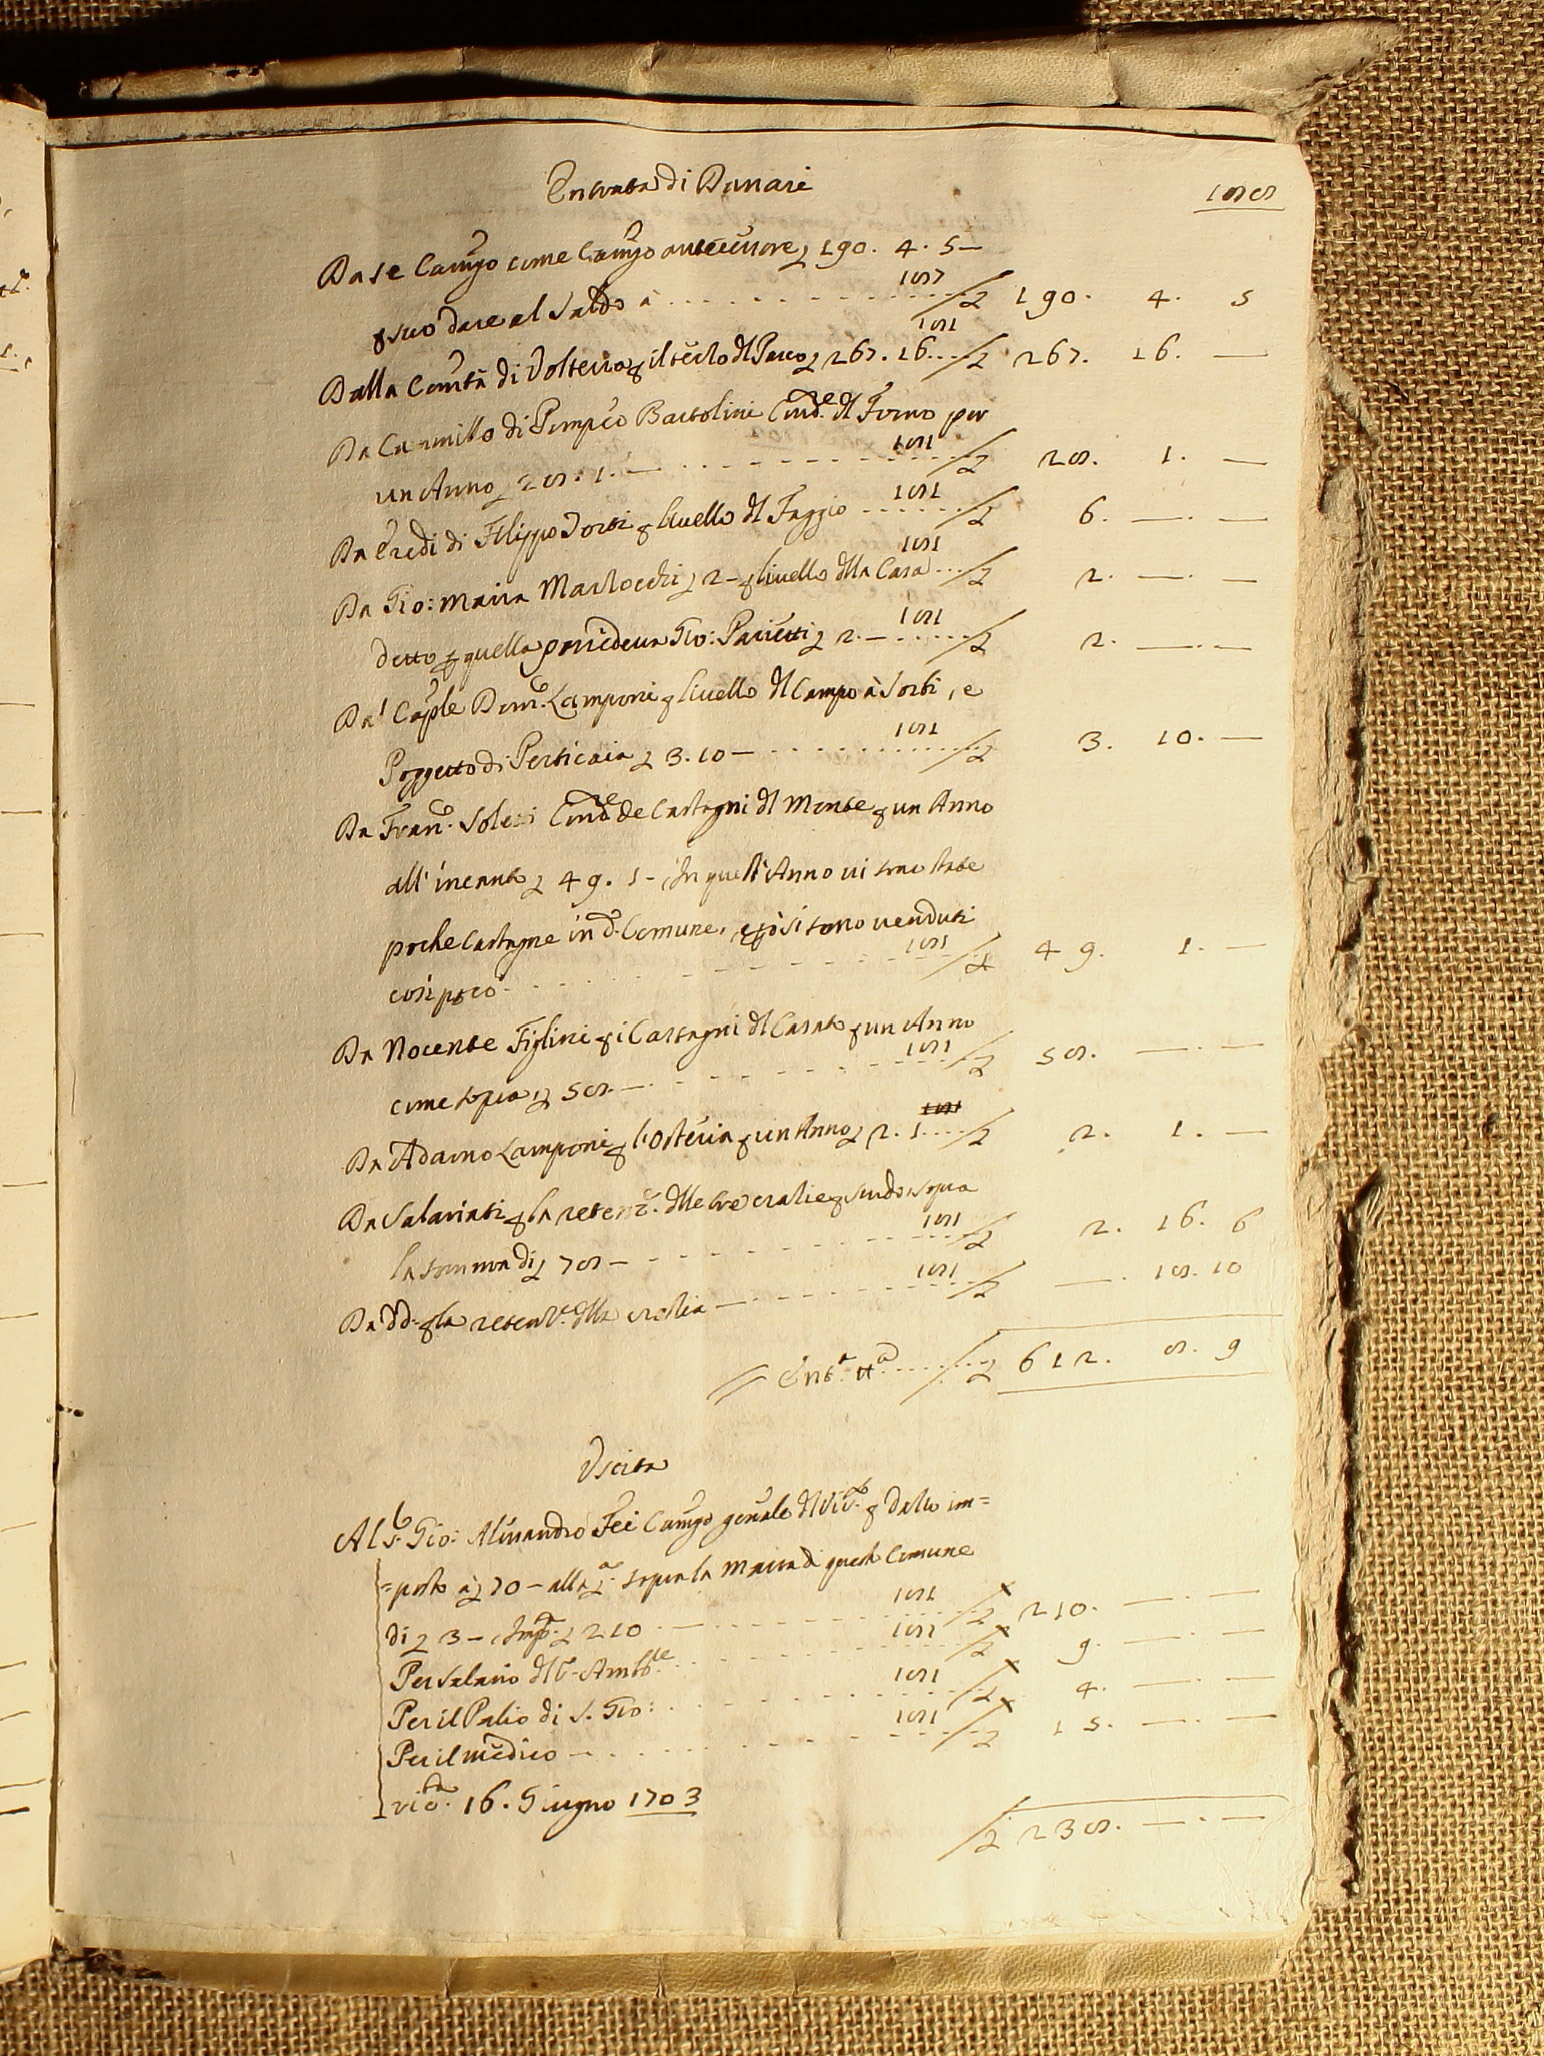 Entrata di Danari
188
Da se Camgo come Camgo antecessore £ 190. 4. 5 —
187
p suo dare al Saldo à ........ £ 190. 4. 5
181
Dalla Comtà di Volterra p il terzo dl Pasco £ 267. 16 .... £ 267. 16. —
Da Cammillo di Pompeo Bartolini Condre dl Forno per
181
un Anno £ 28: 1. — ........ £ 28. 1. —
181
Da Eredi di Filippo Sorbi p livello dl Faggio ...... £ 6. —. —
181
Da Gio: Maria Martocchi £ 2 — p livello dlla Casa .... £ 2. —. —
181
detto p quella possedeva Gio: £ 2. — ...... £ 2. —. —
Dal Caple Domco. Lamponi p livello dl Campo à Sorbi, e
181
Poggetto di Perticaia £ 3. 10 — ........ £ 3. 10. —
Da Franco. Condre de Castagni dl Monte p un Anno
all' incanto £ 49. 1 — In quest' Anno vi sono state
poche Castagne in do. Comune, e pò si sono venduti
181
così poco ........ £ 49. 1. —
Da Nocente Figlini p i Castagni dl Casato p un Anno
181
come sopra £ 58. — ........ £ 58. —. —
181
Da Adamo Lamponi p l'Osteria p un Anno £ 2. 1 .... £ 2. 1. —
Da Salariati p la retenze. dlle tre cratie p scudo sopra
181
la somma di £ 78 — ........ £ 2. 16. 6
181
Da dd. p la retenze. dlla cratia — ........ £ —. 18. 10
Enta. tta. ...... £ 612. 8. 9
Uscita
Al S. Gio: Alessandro Fei Camgo genale dl Victo. p Dazio im=
=posto à £ 70 — alla £a. sopra la Massa di questo Comune
181
di £ 3 — Impa. £ 210 . — ........ £ 210. —. —
181
Per salario dl S. Ambre. ........ £ 9. —. —
181
Per il Palio di S. Gio: ........ £ 4. —. —
181
Per il medico — ........ £ 15. —. —
victa. 16. Giugno 1703
£ 238. —. —